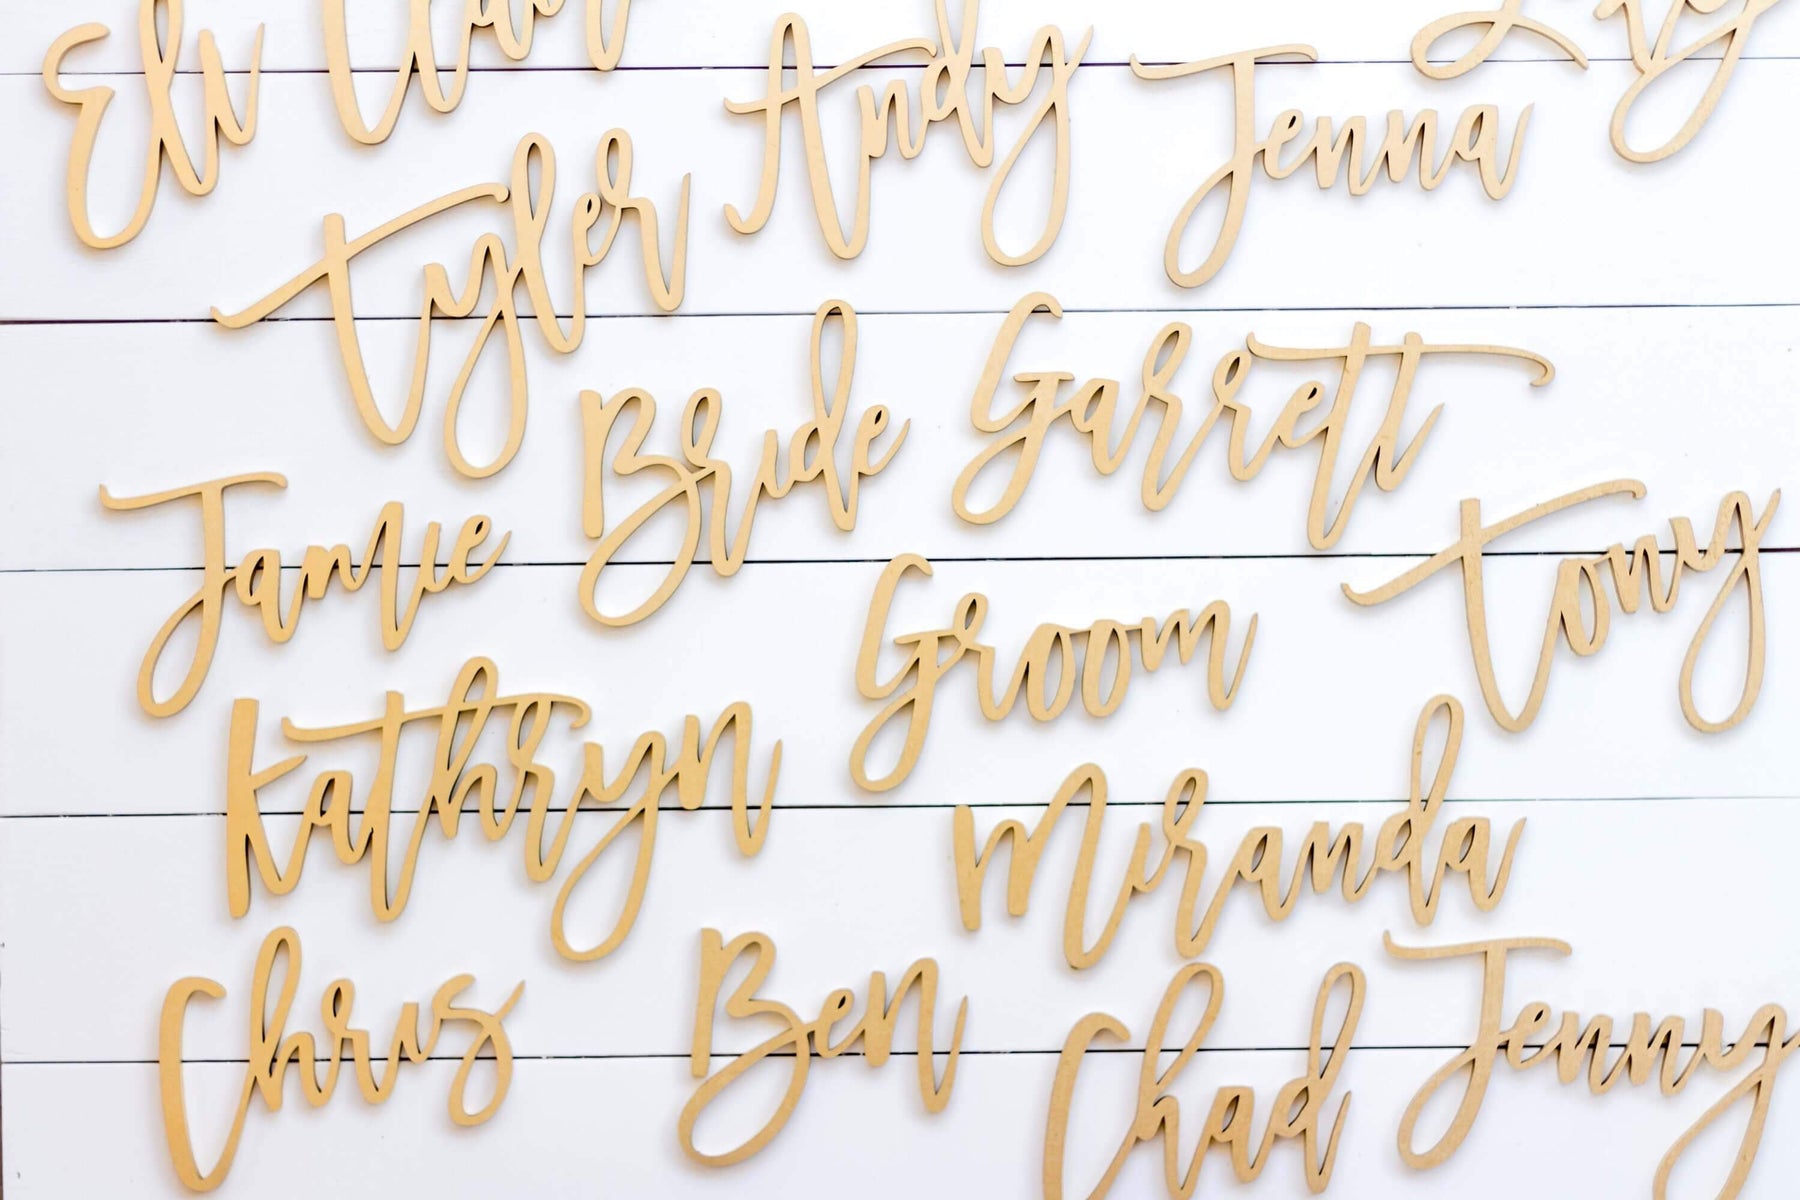 Eli
Andy
Jenna
Tyler
Bride
Garrett
Jamie
Tony
Groom
Kathryn
Miranda
Chris
Ben
Chad
Jenny